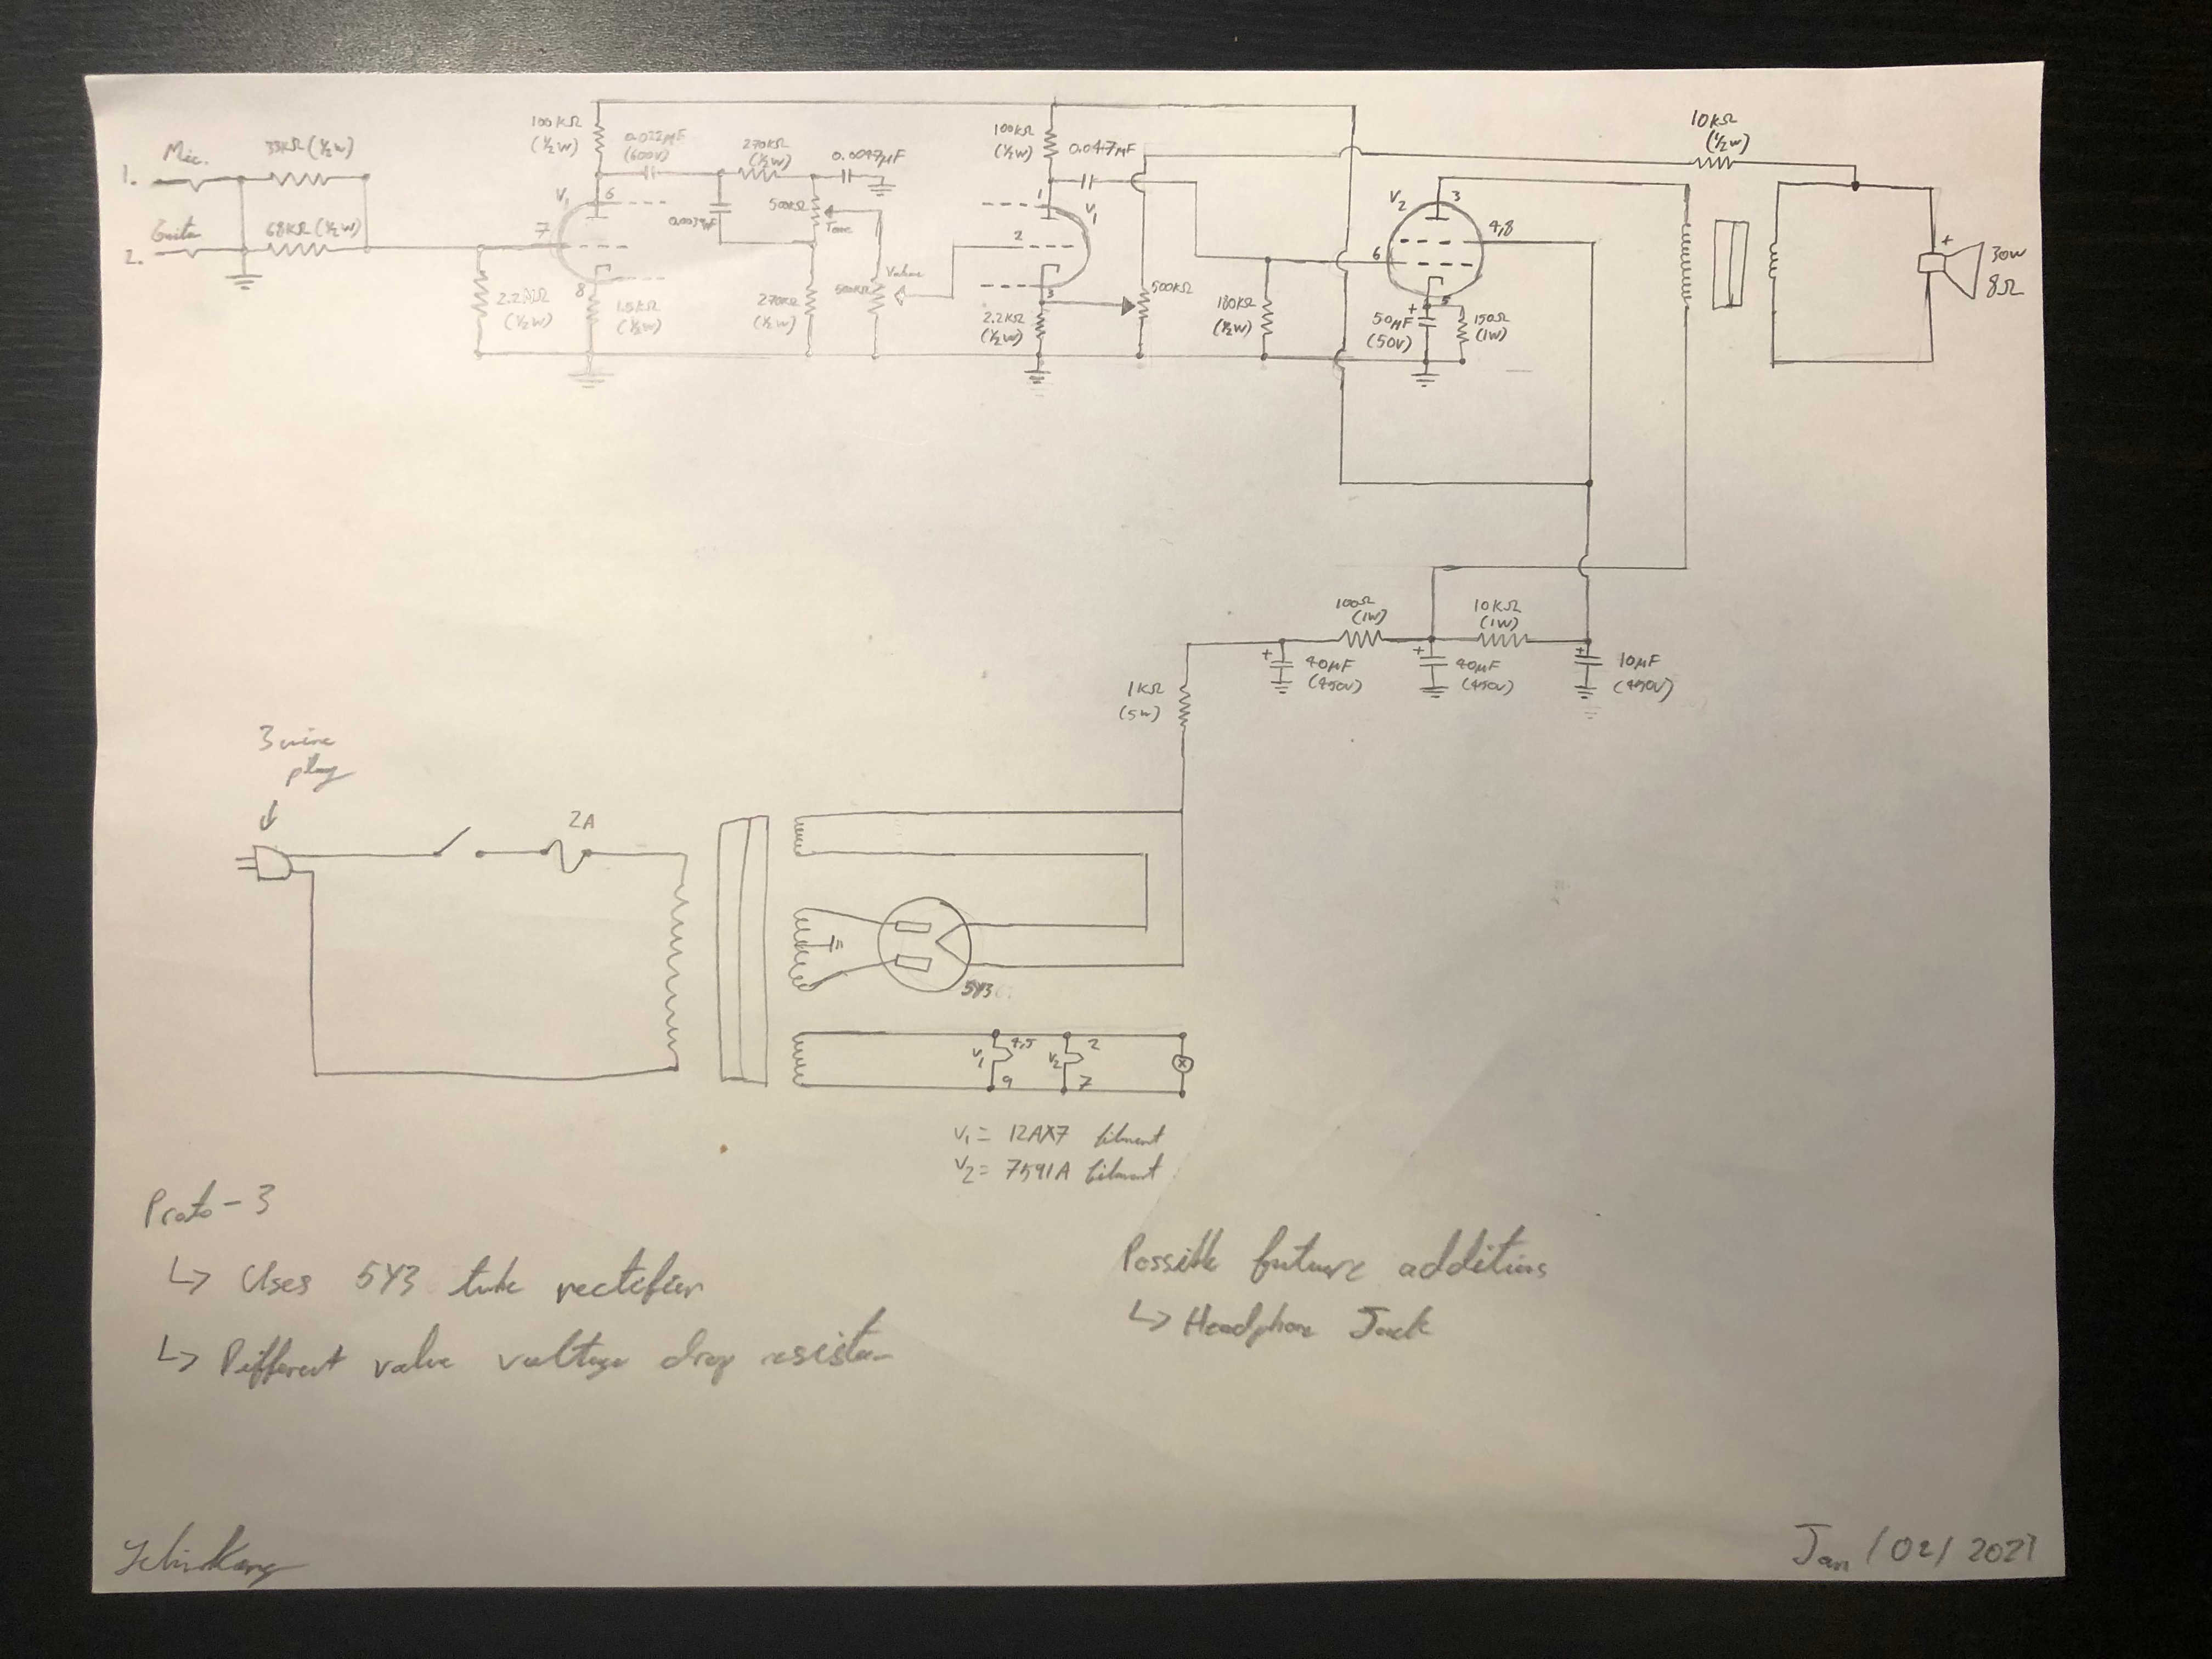 Mic.
33KΩ (½W)
1.
Guitar
68KΩ (½W)
2.
2.2MΩ
(½W)
100KΩ
(½W)
V₁
6
7
8
1.5KΩ
(½W)
0.022µF
(600V)
270KΩ
(½W)
0.0047µF
500KΩ
Tone
270KΩ
(½W)
Volume
500KΩ
100KΩ
(½W)
0.047µF
1
V₁
2
3
2.2KΩ
(½W)
500KΩ
180KΩ
(½W)
V₂
3
4,8
6
5
+
50µF
(50V)
150Ω
(1W)
10KΩ
(½W)
+
30W
8Ω
100Ω
(1W)
10KΩ
(1W)
+
40µF
(450V)
+
40µF
(450V)
+
10µF
(450V)
1KΩ
(5W)
3 wire
plug
2A
5Y3
V₁
4,5
9
V₂
2
7
V₁ = 12AX7 filament
V₂ = 7591A filament
Proto-3
↳ Uses 5Y3 tube rectifier
↳ Different value voltage drop resistor
Possible future additions
↳ Headphone Jack
Jan/02/2021